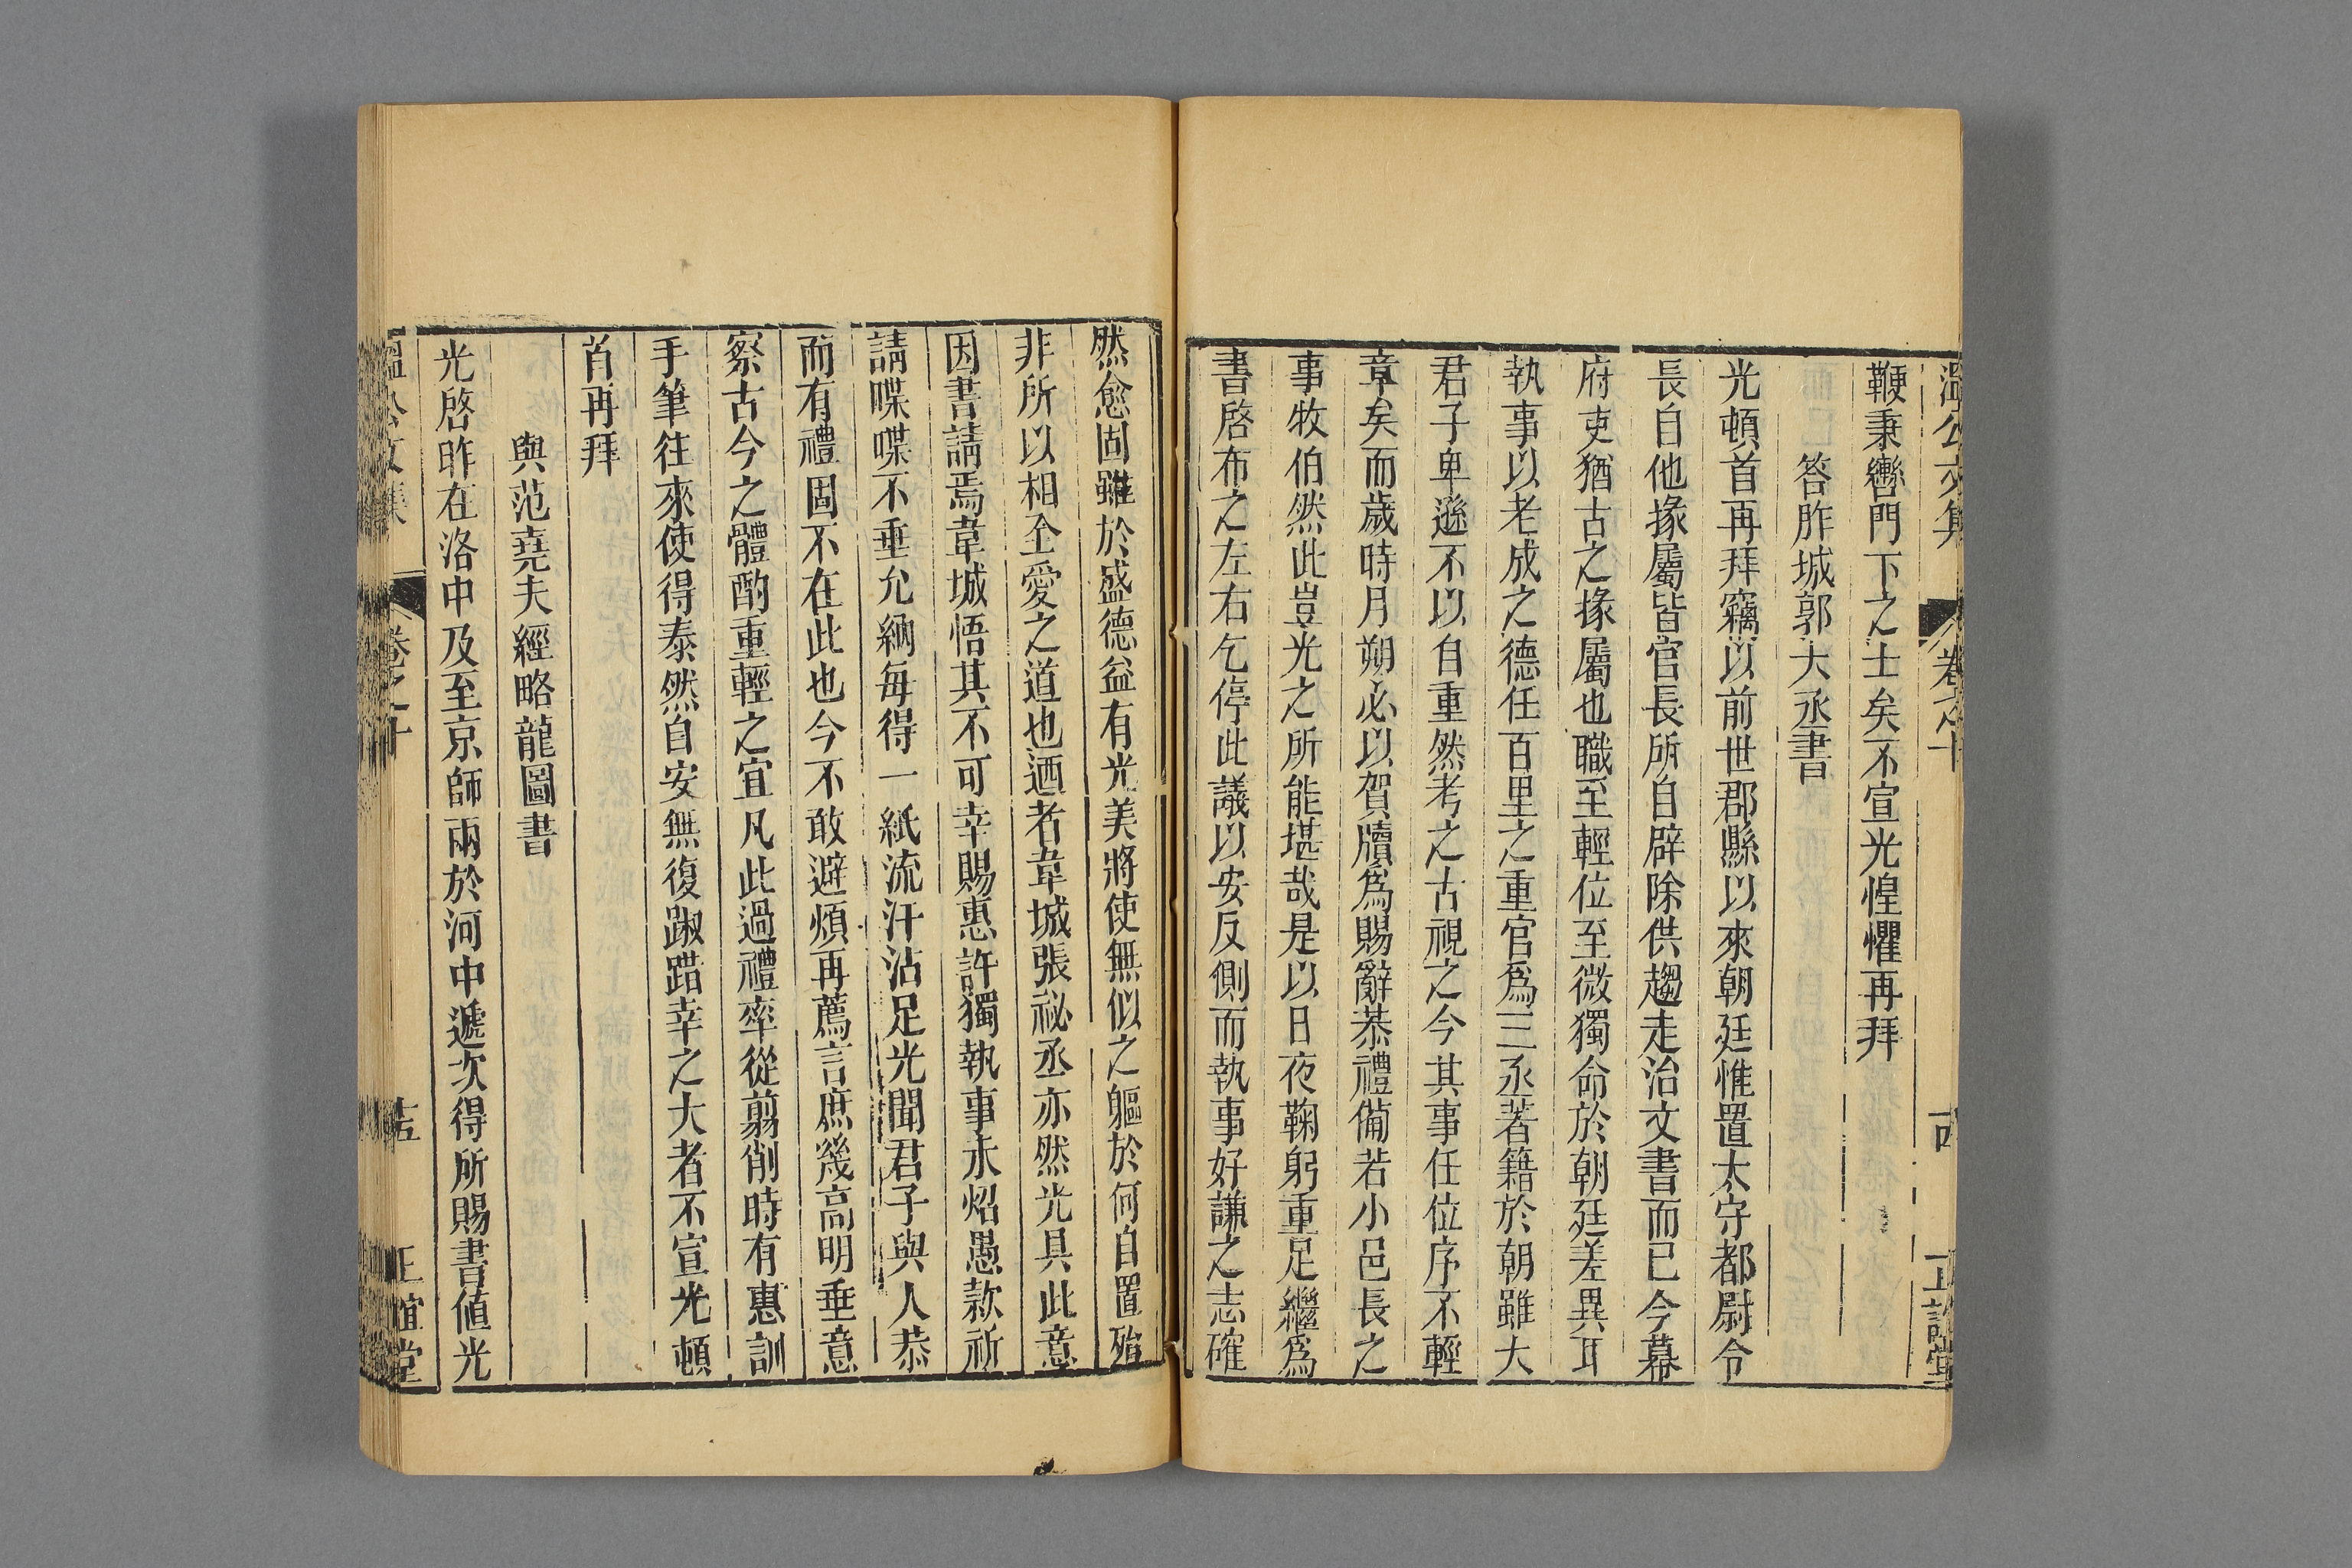 溫公文集 卷之十 正誼堂
鞭秉轡門下之士矣不宣光惶懼再拜
答胙城郭大丞書
光頓首再拜竊以前世郡縣以來朝廷惟置太守都尉令
長自他掾屬皆官長所自辟除供趨走治文書而已今幕
府吏猶古之掾屬也職至輕位至微獨命於朝廷差異耳
執事以老成之德任百里之重官爲三丞著籍於朝雖大
君子卑遜不以自重然考之古視之今其事任位序不輕
章矣而歲時月朔必以賀牘爲賜辭恭禮備若小邑長之
事牧伯然此豈光之所能堪哉是以日夜鞠躬重足繼爲
書啓布之左右乞停此議以安反側而執事好謙之志確
然愈固雖於盛德益有光美將使無似之軀於何自置殆
非所以相全愛之道也迺者韋城張祕丞亦然光具此意
因書請焉韋城悟其不可幸賜惠許獨執事未炤愚款祈
請喋喋不垂允納每得一紙流汗沾足光聞君子與人恭
而有禮固不在此也今不敢避煩再薦言庶幾高明垂意
察古今之體酌重輕之宜凡此過禮率從翦削時有惠訓
手筆往來使得泰然自安無復踧踖幸之大者不宣光頓
首再拜
與范堯夫經略龍圖書
光啓昨在洛中及至京師兩於河中遞次得所賜書值光
溫公文集 卷之十 十五 正誼堂